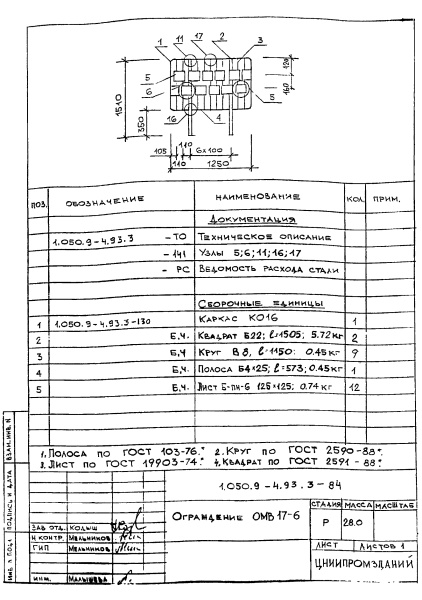 1 11 17 2 3
5
6
5
16 4
1510
350
120
160
105 110 6×100
110 1250
ПОЗ. ОБОЗНАЧЕНИЕ НАИМЕНОВАНИЕ КОЛ. ПРИМ.
ДОКУМЕНТАЦИЯ
1.050.9-4.93.3 -ТО ТЕХНИЧЕСКОЕ ОПИСАНИЕ
-141 УЗЛЫ 5;6;11;16;17
- РС ВЕДОМОСТЬ РАСХОДА СТАЛИ
СБОРОЧНЫЕ ЕДИНИЦЫ
1 1.050.9-4.93.3-130 КАРКАС КО16 1
2 Б.Ч. КВАДРАТ Б22; ℓ=1505; 5.72кг 2
3 Б.Ч КРУГ В8, ℓ=1150; 0.45кг 9
4 Б.Ч. ПОЛОСА Б4×25; ℓ=573; 0.45кг 1
5 Б.Ч. ЛИСТ Б-ПН-6 125×125; 0.74кг 12
1. ПОЛОСА ПО ГОСТ 103-76.* 2. КРУГ ПО ГОСТ 2590-88.*
3. ЛИСТ ПО ГОСТ 19903-74.* 4. КВАДРАТ ПО ГОСТ 2591-88.*
1.050.9-4.93.3-84
ОГРАЖДЕНИЕ ОМВ17-6
СТАДИЯ МАССА МАСШТАБ
Р 28.0
ЛИСТ ЛИСТОВ 1
ЦНИИПРОМЗДАНИЙ
ЗАВ ОТД. КОДЫШ
Н КОНТР. МЕЛЬНИКОВ
ГИП МЕЛЬНИКОВ
ИНЖ. МАЛЫШЕВА
ВЗАМ.ИНВ. N
ПОДПИСЬ И ДАТА
ИНВ. N ПОДЛ